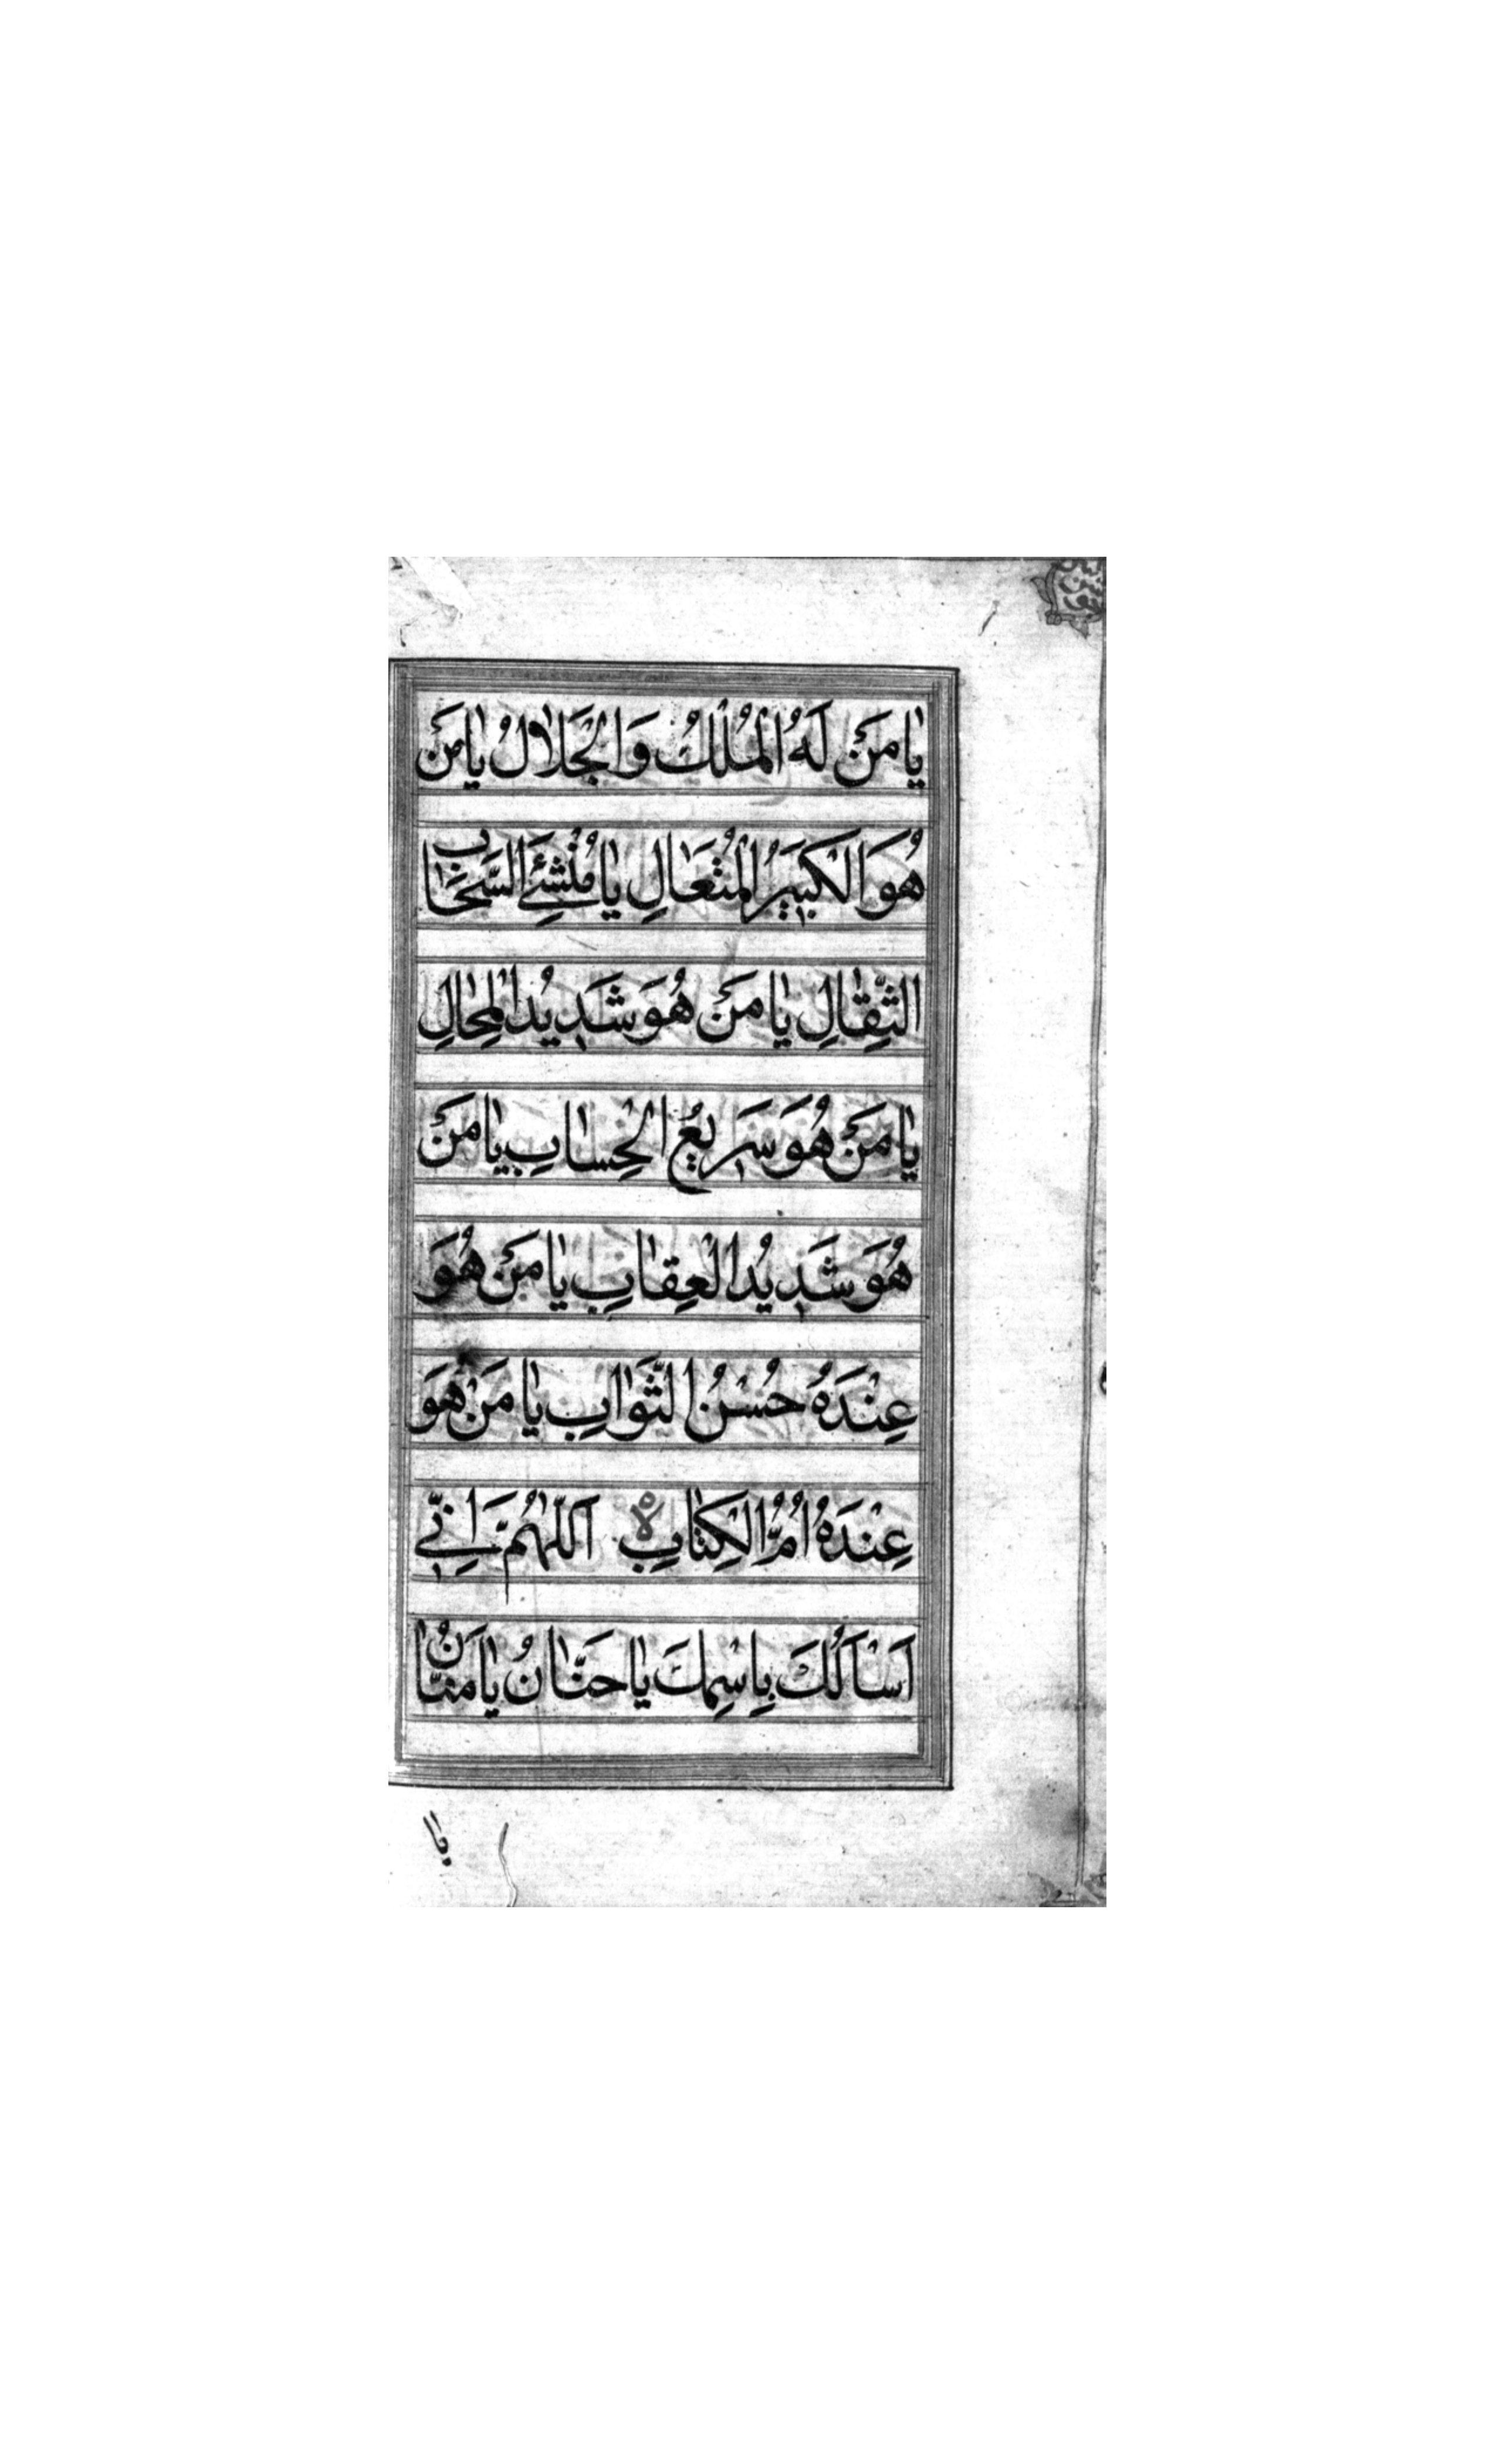 يَا مَنْ لَهُ الْمُلْكُ وَالْجَلَالُ يَا مَنْ
هُوَ الْكَبِيرُ الْمُتَعَالِ يَا مُنْشِئَ السَّحَابِ
الثِّقَالِ يَا مَنْ هُوَ شَدِيدُ الْمِحَالِ
يَا مَنْ هُوَ سَرِيعُ الْحِسَابِ يَا مَنْ
هُوَ شَدِيدُ الْعِقَابِ يَا مَنْ هُوَ
عِنْدَهُ حُسْنُ الثَّوَابِ يَا مَنْ هُوَ
عِنْدَهُ اُمُّ الْكِتَابِ ه اَللّٰهُمَّ اِنِّي
اَسْاَلُكَ بِاسْمِكَ يَا حَنَّانُ يَا مَنَّانُ
يا